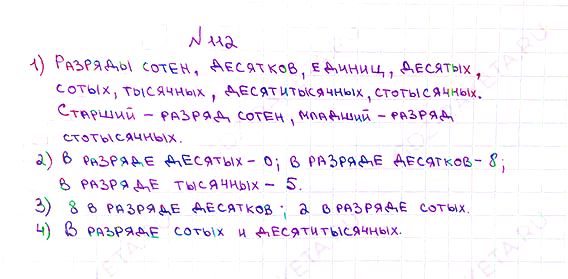 № 112
1) Разряды сотен, десятков, единиц, десятых,
сотых, тысячных, десятитысячных, стотысячных.
Старший – разряд сотен, младший – разряд
стотысячных.
2) В разряде десятых – 0; в разряде десятков – 8;
в разряде тысячных – 5.
3) 8 в разряде десятков; 2 в разряде сотых.
4) В разряде сотых и десятитысячных.